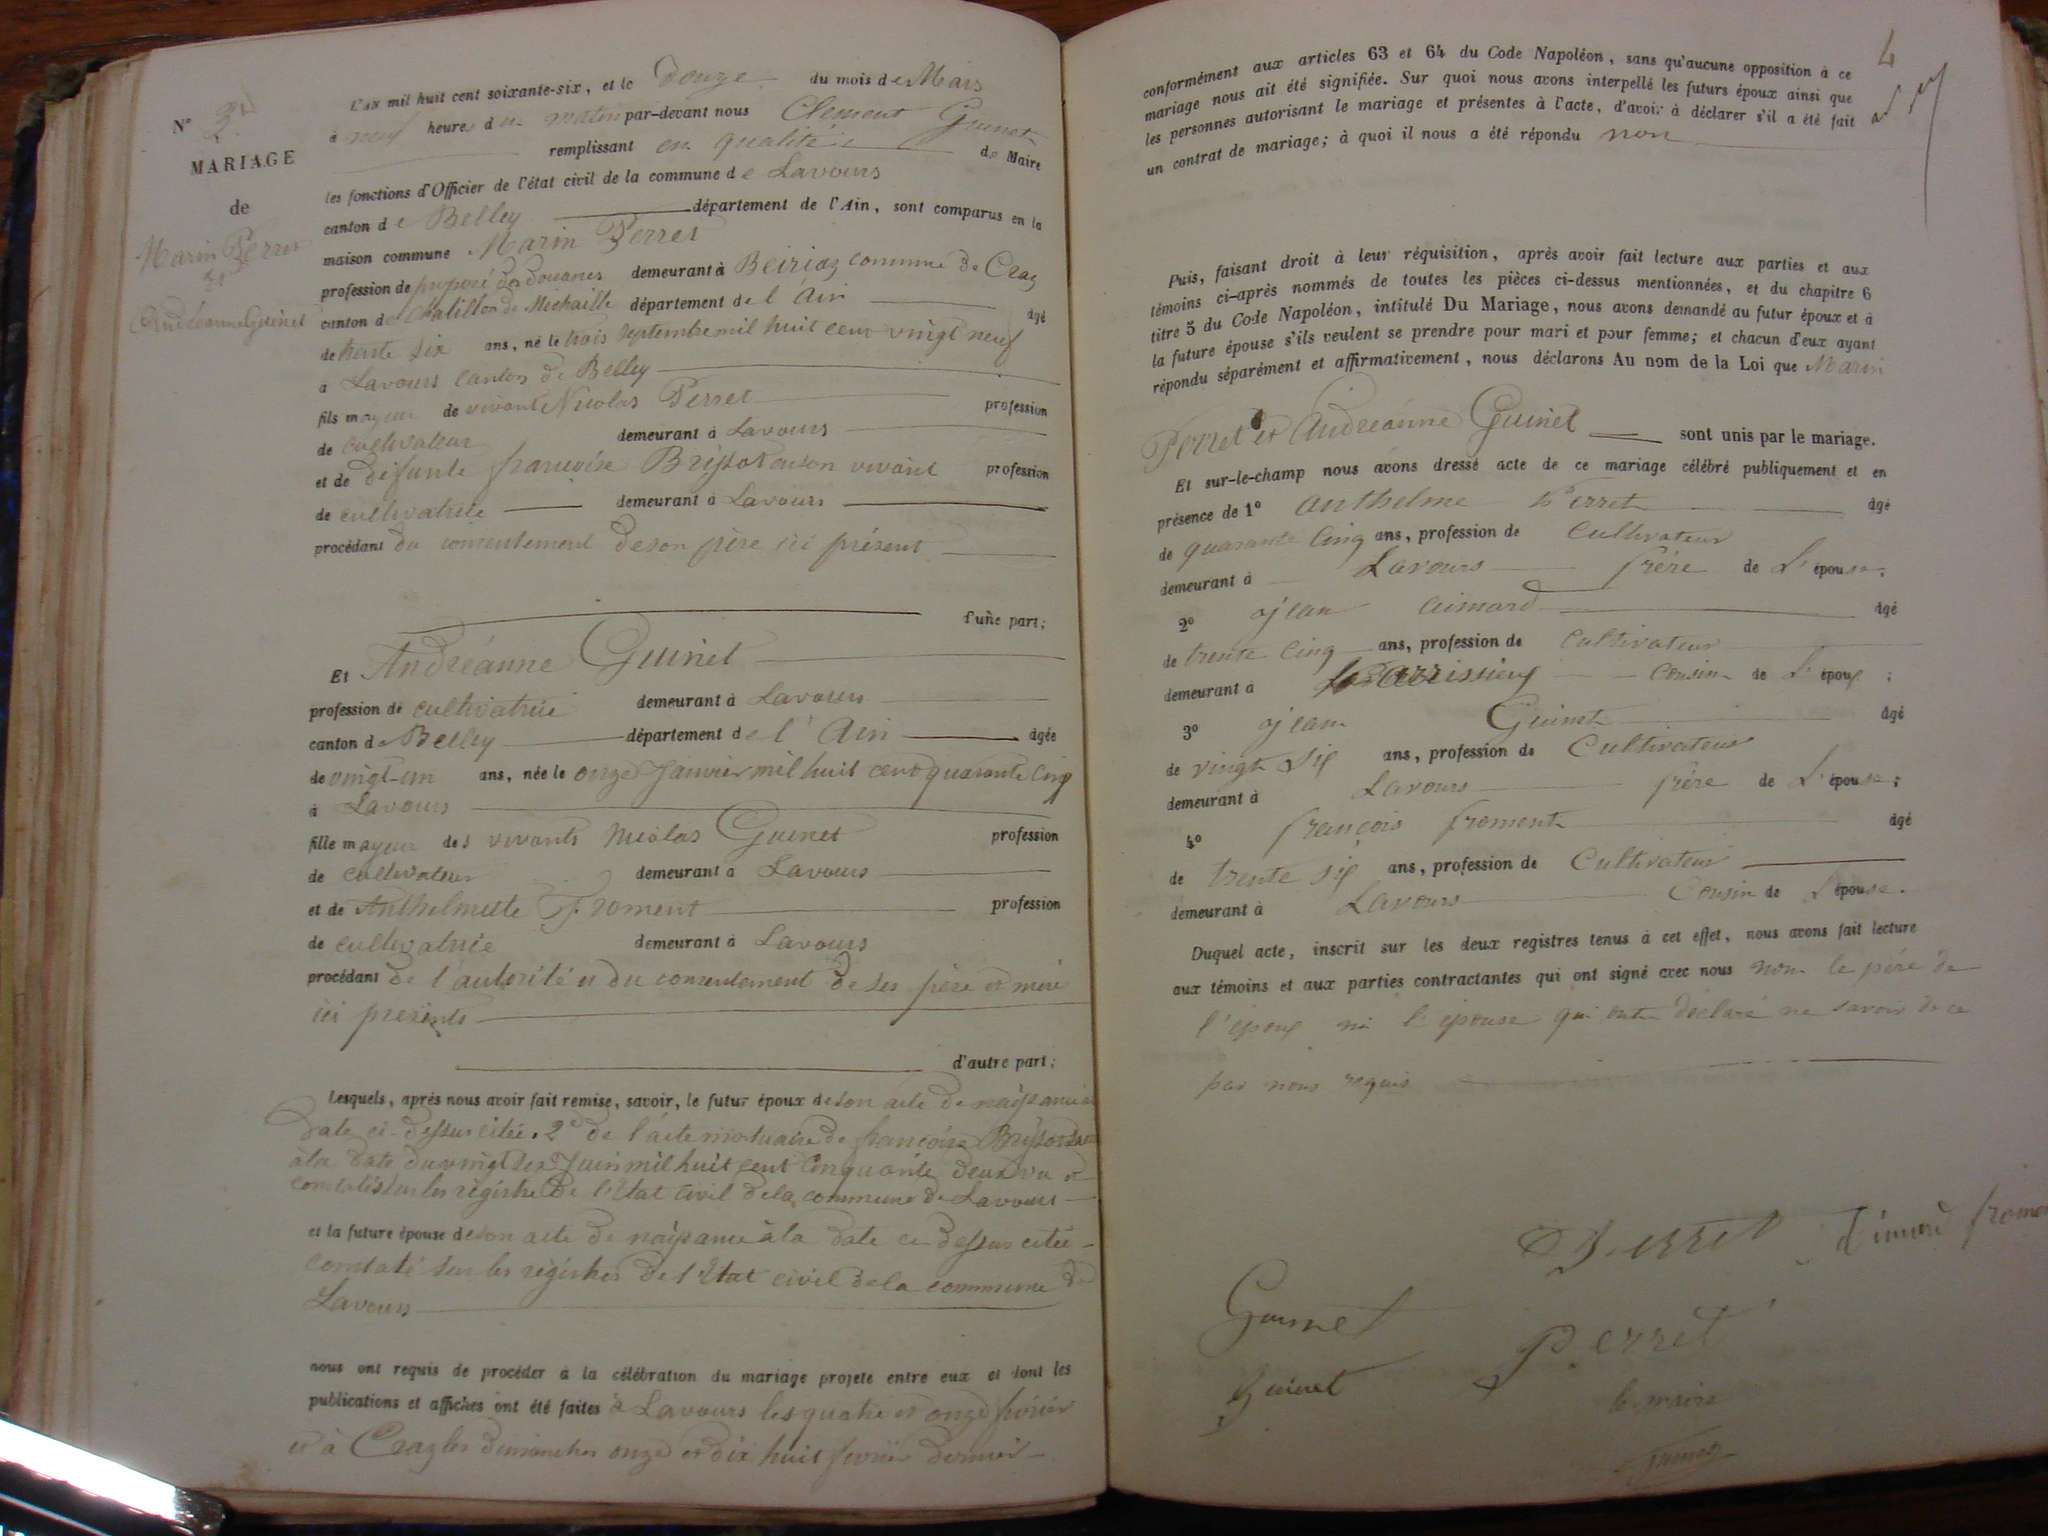 N° 2
MARIAGE
de
Marin Perret
et
Andréanne Guinet
L'AN mil huit cent soixante-six, et le Douze du mois de Mars
à neuf heures du matin par-devant nous Clément Guinet
remplissant en qualité de Maire
les fonctions d'Officier de l'état civil de la commune de Lavours
canton de Belley département de l'Ain, sont comparus en la
maison commune Marin Perret
profession de préposé des douanes demeurant à Beiriaz commune de Craz
canton de Chatillon de Michaille département de l'Ain âgé
de trente six ans, né le trois septembre mil huit cent vingt neuf
à Lavours canton de Belley
fils mayeur de vivant Nicolas Perret profession
de cultivateur demeurant à Lavours
et de défunte françoise Brissot en son vivant profession
de cultivatrice demeurant à Lavours
procédant du consentement de son père ici présent
d'une part;
Et Andréanne Guinet
profession de cultivatrice demeurant à Lavours
canton de Belley département de l'Ain âgée
de vingt-un ans, née le onze Janvier mil huit cent quarante cinq
à Lavours
fille mayeur des vivants Nicolas Guinet profession
de cultivateur demeurant à Lavours
et de Anthelmette Froment profession
de cultivatrice demeurant à Lavours
procédant de l'autorité et du consentement de ses père et mère
ici présents
d'autre part;
Lesquels, après nous avoir fait remise, savoir, le futur époux de son acte de naissance
date ci-dessus citée. 2° de l'acte mortuaire de françoise
à la date du vingt six Juin mil huit cent cinquante deux vu et
constaté sur les registres de l'Etat civil de la commune de Lavours
et la future épouse de son acte de naissance à la date ci dessus citée
constaté sur les registres de l'Etat civil de la commune de
Lavours
nous ont requis de procéder à la célébration du mariage projeté entre eux et dont les
publications et affiches ont été faites à Lavours les quatre et onze février
et à Craz les dimanches onze et dix huit février dernier
4
conformément aux articles 63 et 64 du Code Napoléon, sans qu'aucune opposition à ce
mariage nous ait été signifiée. Sur quoi nous avons interpellé les futurs époux ainsi que
les personnes autorisant le mariage et présentes à l'acte, d'avoir à déclarer s'il a été fait
un contrat de mariage; à quoi il nous a été répondu non
Puis, faisant droit à leur réquisition, après avoir fait lecture aux parties et aux
témoins ci-après nommés de toutes les pièces ci-dessus mentionnées, et du chapitre 6
titre 5 du Code Napoléon, intitulé Du Mariage, nous avons demandé au futur époux et à
la future épouse s'ils veulent se prendre pour mari et pour femme; et chacun d'eux ayant
répondu séparément et affirmativement, nous déclarons Au nom de la Loi que Marin
Perret et Andréanne Guinet sont unis par le mariage.
Et sur-le-champ nous avons dressé acte de ce mariage célébré publiquement et en
présence de 1° Anthelme Perret âgé
de quarante cinq ans, profession de cultivateur
demeurant à Lavours frère de L'épouse;
2° Jean Aimard âgé
de trente cinq ans, profession de cultivateur
demeurant à cousin de L'époux;
3° Jean Guinet âgé
de vingt six ans, profession de cultivateur
demeurant à Lavours frère de L'épouse;
4° françois froment âgé
de trente six ans, profession de cultivateur
demeurant à Lavours cousin de L'épouse.
Duquel acte, inscrit sur les deux registres tenus à cet effet, nous avons fait lecture
aux témoins et aux parties contractantes qui ont signé avec nous non le père de
l'époux ni l'épouse qui ont déclaré ne savoir de ce
par nous requis
Perret Aimard froment
Guinet Perret
Guinet le maire
Guinet